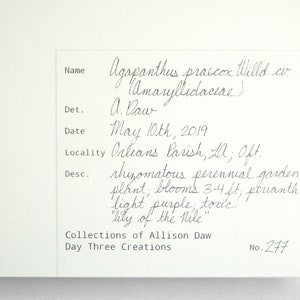 Name Agapanthus praecox Willd cv.
(Amaryllidaceae)
Det. A. Daw
Date May 10th, 2019
Locality Orleans Parish, LA; 0ft.
Desc. rhizomatous perennial garden
plant, blooms 3-4 ft, perianth
light purple; toxic.
"lily of the Nile"
Collections of Allison Daw
Day Three Creations No. 277